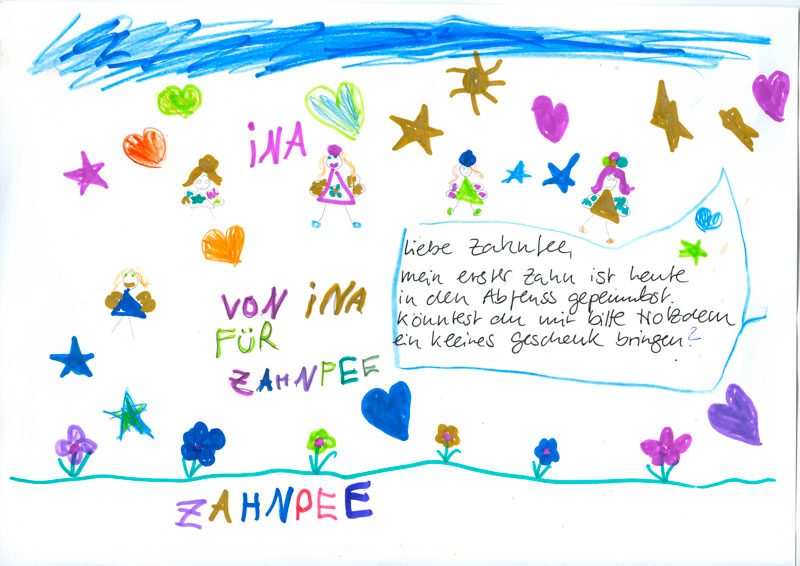 iNA
liebe Zahnfee,
mein erster Zahn ist heute
in den Abfluss geplumbst.
könntest du mir bitte trotzdem
ein kleines Geschenk bringen?
VON iNA
FÜR
ZAHNPEE
ZAHNPEE